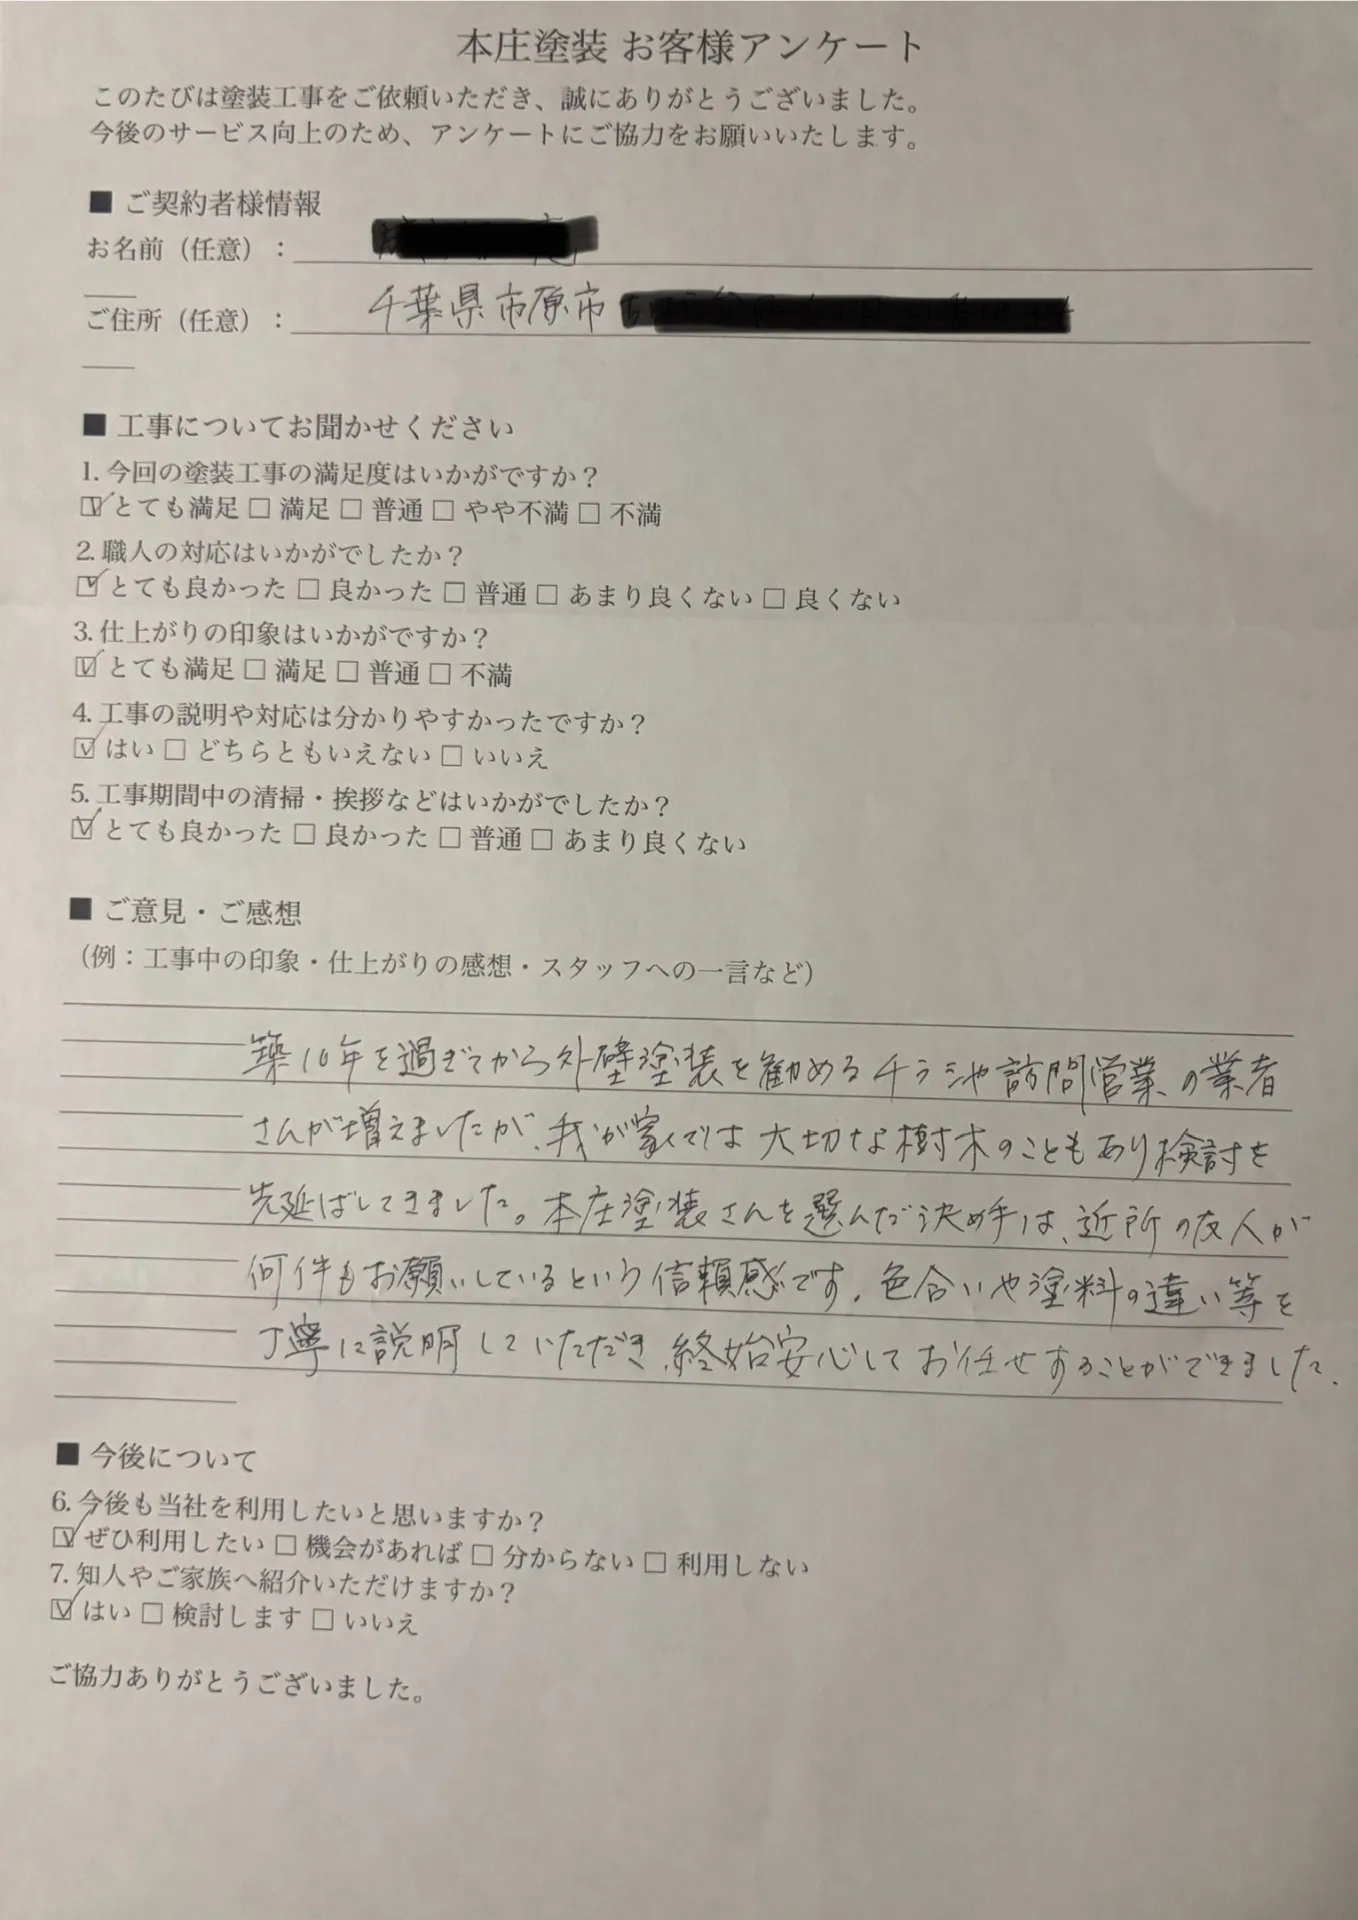 本庄塗装 お客様アンケート
このたびは塗装工事をご依頼いただき、誠にありがとうございました。
今後のサービス向上のため、アンケートにご協力をお願いいたします。
■ ご契約者様情報
お名前（任意）：
ご住所（任意）： 千葉県市原市
■ 工事についてお聞かせください
1. 今回の塗装工事の満足度はいかがですか？
☑ とても満足 □ 満足 □ 普通 □ やや不満 □ 不満
2. 職人の対応はいかがでしたか？
☑ とても良かった □ 良かった □ 普通 □ あまり良くない □ 良くない
3. 仕上がりの印象はいかがですか？
☑ とても満足 □ 満足 □ 普通 □ 不満
4. 工事の説明や対応は分かりやすかったですか？
☑ はい □ どちらともいえない □ いいえ
5. 工事期間中の清掃・挨拶などはいかがでしたか？
☑ とても良かった □ 良かった □ 普通 □ あまり良くない
■ ご意見・ご感想
（例：工事中の印象・仕上がりの感想・スタッフへの一言など）
築10年を過ぎてから外壁塗装を勧めるチラシや訪問営業の業者
さんが増えましたが、我が家では大切な樹木のこともあり検討を
先延ばしてきました。本庄塗装さんを選んだ決め手は、近所の友人が
何件もお願いしているという信頼感です。色合いや塗料の違い等を
丁寧に説明していただき、終始安心してお任せすることができました。
■ 今後について
6. 今後も当社を利用したいと思いますか？
☑ ぜひ利用したい □ 機会があれば □ 分からない □ 利用しない
7. 知人やご家族へ紹介いただけますか？
☑ はい □ 検討します □ いいえ
ご協力ありがとうございました。